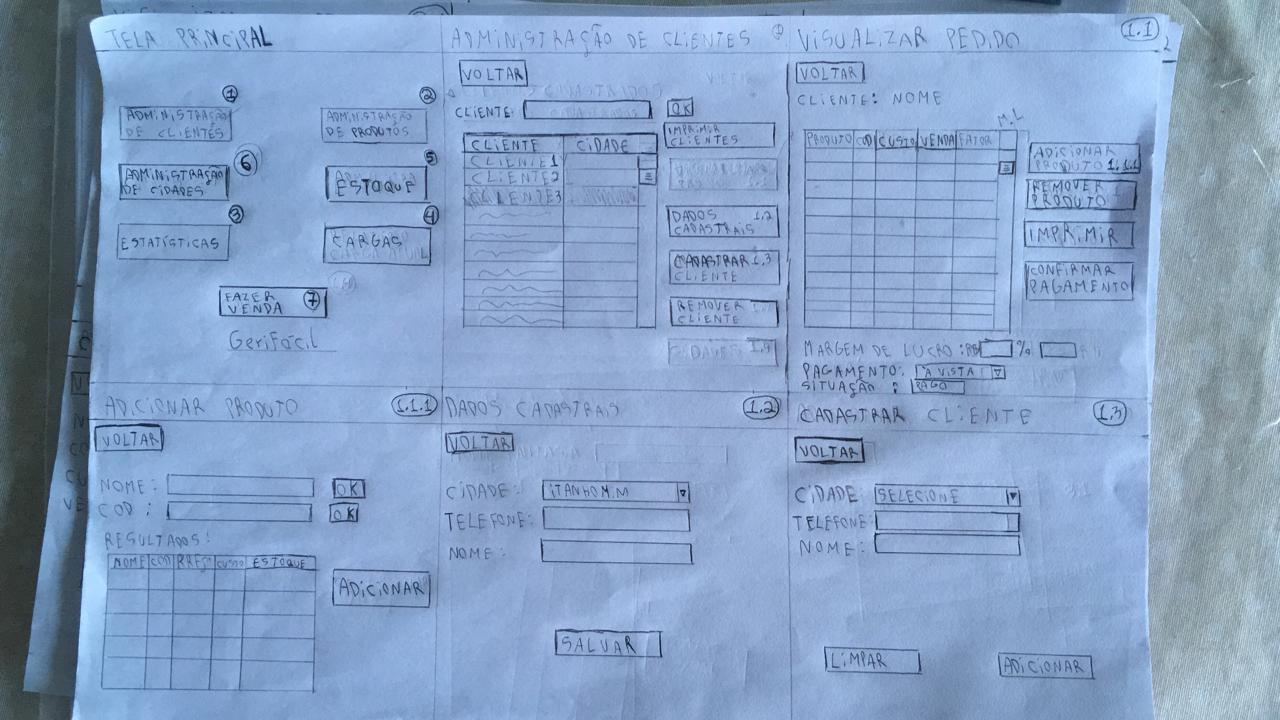 TELA PRINCIPAL
1
2
ADMINISTRAÇÃO
DE CLIENTES
ADMINISTRAÇÃO
DE PRODUTOS
6
5
ADMINISTRAÇÃO
DE CIDADES
ESTOQUE
3
4
ESTATÍSTICAS
CARGAS
FAZER
VENDA 7
GeriFácil
ADMINISTRAÇÃO DE CLIENTES
VOLTAR
CLIENTE:
OK
IMPRIMIR
CLIENTES
CLIENTE CIDADE
CLIENTE1
CLIENTE2
CLIENTE3
DADOS 1.2
CADASTRAIS
CADASTRAR 1.3
CLIENTE
REMOVER
CLIENTE
VISUALIZAR PEDIDO 1.1
VOLTAR
CLIENTE: NOME
M.L
PRODUTO COD CUSTO VENDA FATOR
ADICIONAR
PRODUTO 1.1.1
REMOVER
PRODUTO
IMPRIMIR
CONFIRMAR
PAGAMENTO
MARGEM DE LUCRO : %
PAGAMENTO: À VISTA
SITUAÇÃO : PAGO
ADICIONAR PRODUTO 1.1.1
VOLTAR
NOME: OK
COD : OK
RESULTADOS:
NOME COD CUSTO ESTOQUE
ADICIONAR
DADOS CADASTRAIS 1.2
VOLTAR
CIDADE:
TELEFONE:
NOME :
SALVAR
CADASTRAR CLIENTE 1.3
VOLTAR
CIDADE: SELECIONE
TELEFONE:
NOME :
LIMPAR
ADICIONAR